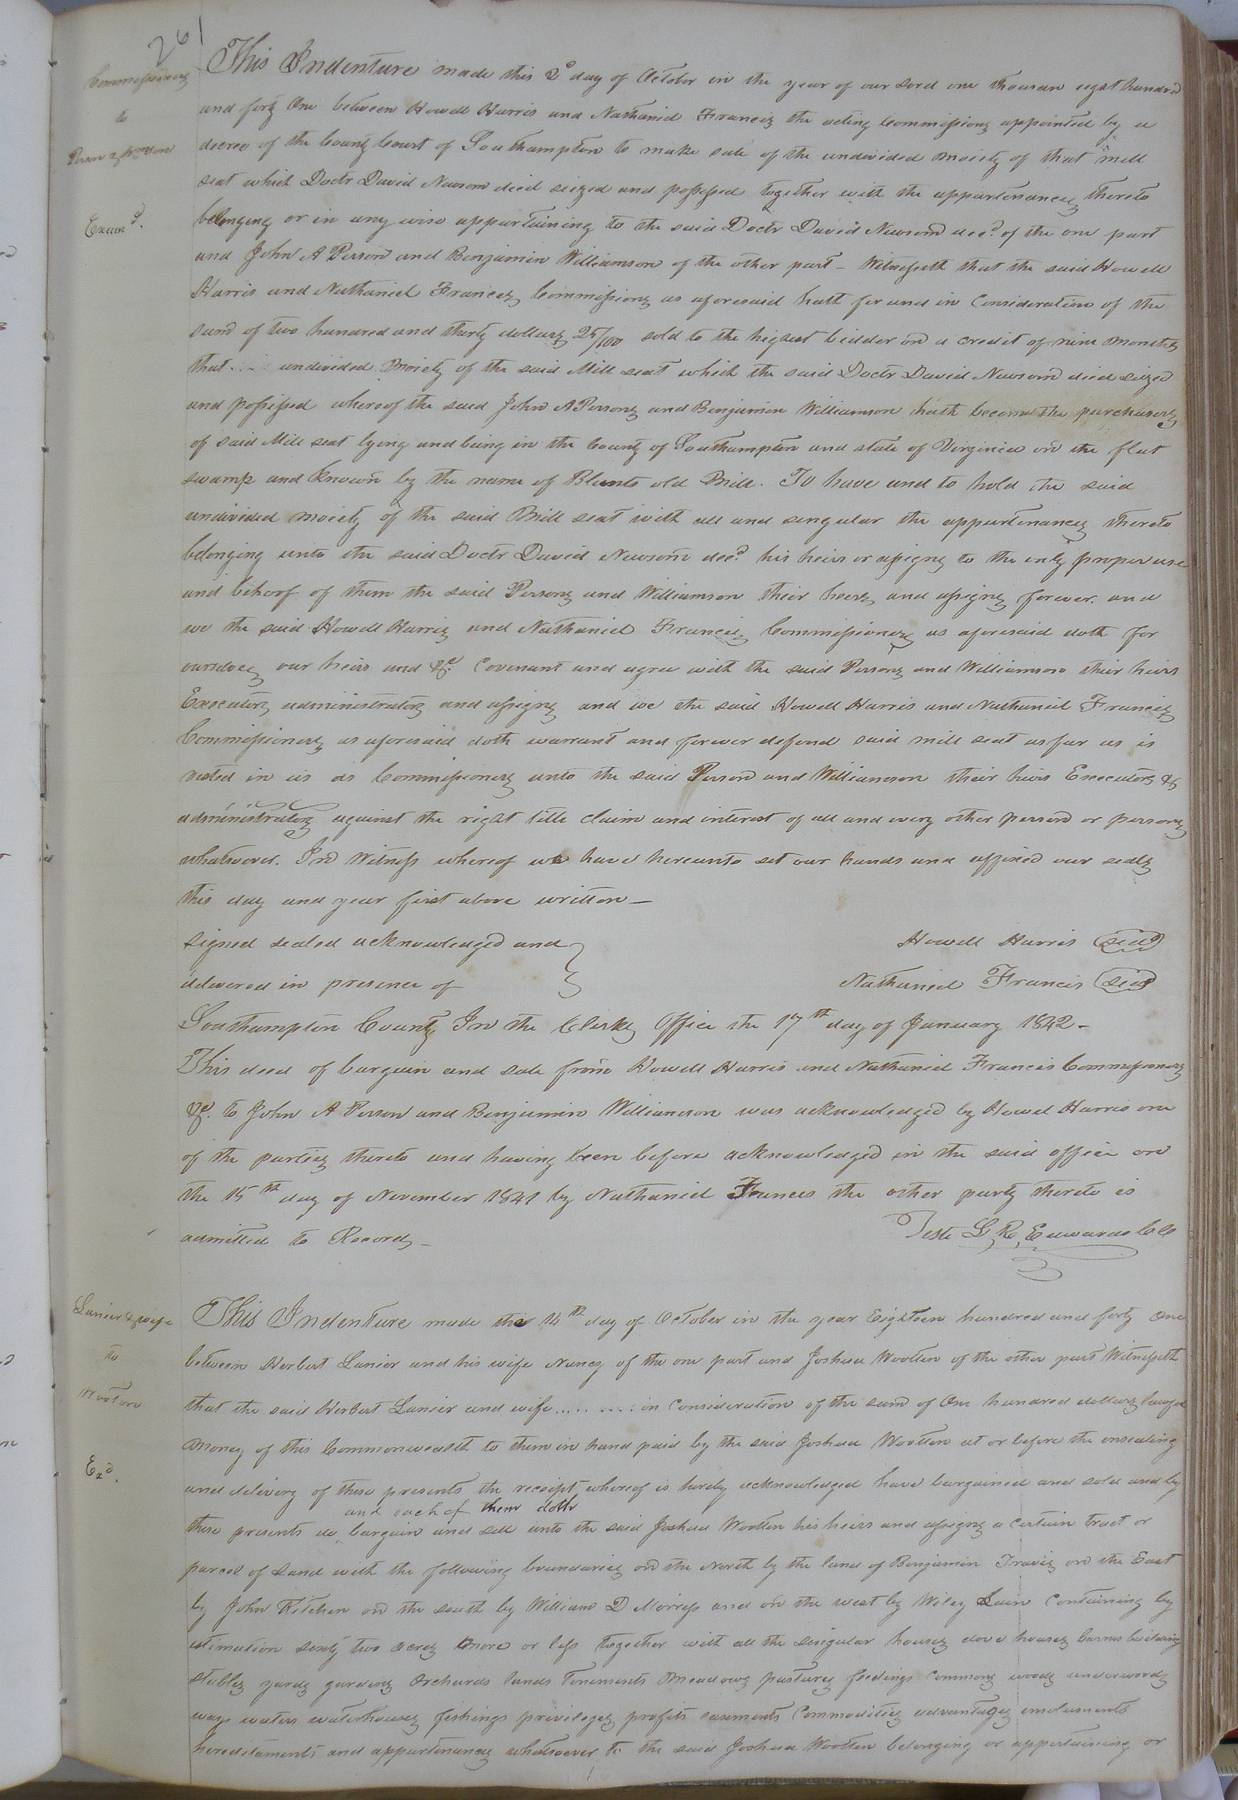 261
Commissioners
to
Person & Wmson
Exam^d.
This Indenture made this 2^d day of October in the year of our Lord one thousan eight hundred
and forty One between Howell Harris and Nathaniel Francis the acting Commissions appointed by a
decree of the County Court of Southampton to make sale of the undivided moiety of that mill
seat which Doctr David Newsom died seized and possessed together with the appurtenances thereto
belonging or in any wise appurtaining to the said Doctr David Newsom dec^d of the one part
and John A Person and Benjamin Williamson of the other part – Witnesseth that the said Howell
Harris and Nathaniel Frances Commissions as aforesaid hath for and in Consideration of the
sum of two hundred and thirty dollars 25/100 sold to the highest bidder on a credit of nine months
that .... undivided Moiety of the said Mill seat which the said Doctr David Newsom died seized
and possessed whereof the said John A Persons and Benjamin Williamson hath become the purchasers
of said Mill seat lying and being in the County of Southampton and state of Virginia on the flat
swamp and Known by the name of Blunts old Mill. To have and to hold the said
undivided moiety of the said Mill seat with all and singular the appurtenances thereto
belonging unto the said Doctr David Newsom dec^d his heirs or assigns to the only proper use
and behoof of them the said Persons and Williamson their heirs and assigns forever. and
we the said Howell Harris and Nathaniel Francis Commissioners as aforesaid doth for
ourselves our heirs and &c. Covenant and agree with the said Persons and Williamson their heirs
Executors administrators and assigns and we the said Howell Harris and Nathaniel Francis
Commissioners as aforesaid doth warrant and forever defend said mill seat as far as is
vested in us as Commissioners unto the said Person and Williamson their heirs Executors &
administrators against the right title claim and interest of all and every other person or persons
whatsoever. In Witness whereof we have hereunto set our hands and affixed our seals
this day and year first above written –
signed sealed acknowledged and
delivered in presence of
Howell Harris (seal)
Nathaniel Francis (seal)
Southampton County In the Clerks Office the 17^th day of January 1842 –
This deed of bargain and sale from Howell Harris and Nathaniel Francis Commissioners
&c. to John A Person and Benjamin Williamson was acknowledged by Howel Harris one
of the parties thereto and having been before acknowledged in the said office on
the 15^th day of November 1841 by Nathaniel Frances the other party thereto is
admitted to Record –
Teste L, R, Edwards CC
Lanier & wife
to
Wootton
Ex^d.
This Indenture made this 14^th day of October in the year Eighteen hundred and forty One
between Herbert Lanier and his wife Nancy of the one part and Joshua Wootten of the other part Witnesseth
that the said Herbert Lanier and wife ........ in Consideration of the sum of One hundred dollars lawful
money of this Commonwealth to them in hand paid by the said Joshua Wootten at or before the ensealing
and delivery of these presents the receipt whereof is hereby acknowledged have bargained and sold and by
and each of them doth
these presents do bargain and sell unto the said Joshua Wootten his heirs and assigns a certain tract or
parcel of Land with the following boundaries on the North by the land of Benjamin Travis on the East
by John Kitchen on the south by William D Morriss and on the west by Wiley Lain Containing by
estimation sixty two acres more or less together with all the singular houses dove houses barns buildings
stables yards gardens Orchards lands Tenements Meadows pastures feedings Commons woods underwoods
ways waters waterhouses fishings privileges profits easements Commodities advantages emoluments
hereditaments and appurtenances whatsoever to the said Joshua Wootten belonging or appertaining or